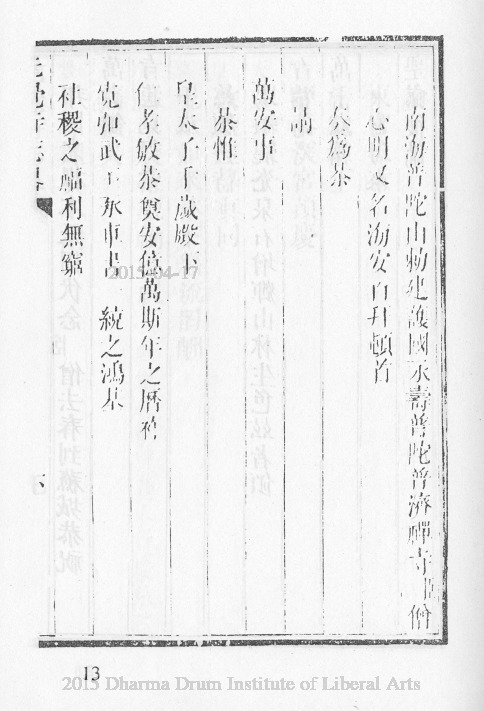 南海普陀山勅建護國永壽普陀普濟禪寺僧
心明又名海安百拜頓首
奏為恭
請
萬安事
恭惟
皇太子千歲殿下
仁孝敏恭奠安億萬斯年之曆
寬如武王永車書一統之鴻基
社稷之福利無窮
13
2015-04-17
2015 Dharma Drum Institute of Liberal Arts